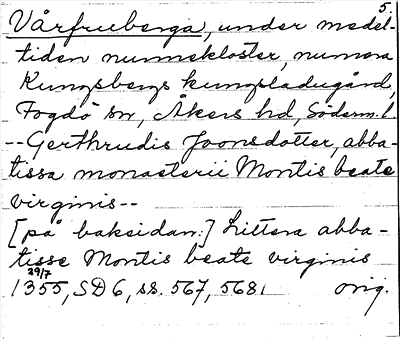 5.
Vårfruberga, under medel-
tiden nunnekloster, numera
Kungsbergs kungsladugård,
Fogdö sn, Åkers hd, Söderm. l.
-- Gerthrudis Joonsdotter, abba-
tissa monasterii Montis beate
virginis --
[på baksidan:] Littera abba-
tisse Montis beate virginis
29/7
1355, SD 6, ss. 567, 568. orig.